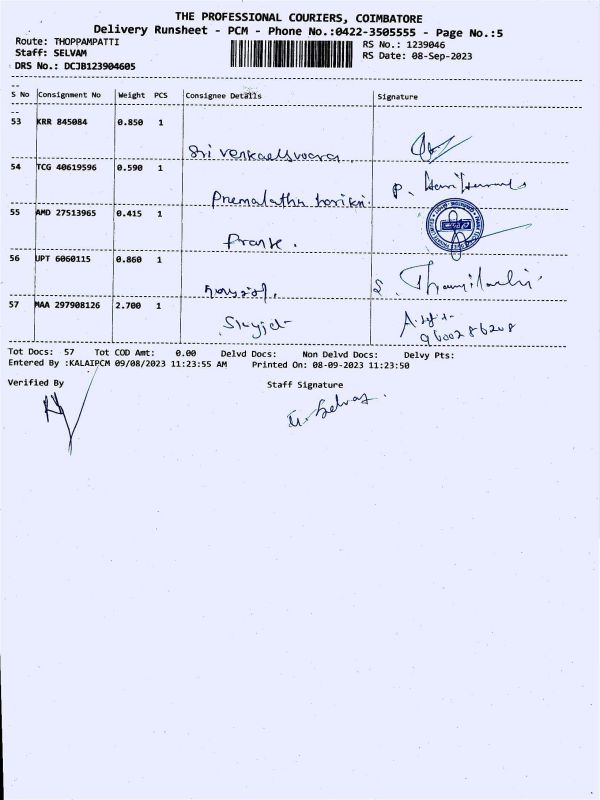 THE PROFESSIONAL COURIERS, COIMBATORE
Delivery Runsheet - PCM - Phone No.:0422-3505555 - Page No.:5
Route: THOPPAMPATTI RS No.: 1239046
Staff: SELVAM RS Date: 08-Sep-2023
DRS No.: DCJB123904605
S No Consignment No Weight PCS Consignee Details Signature
53 KRR 845084 0.850 1
Sri
54 TCG 40619596 0.590 1
Premalatha
55 AMD 27513965 0.415 1
Prank.
56 UPT 6060115 0.860 1
57 MAA 297908126 2.700 1
Skyjet
9600286208
Tot Docs: 57 Tot COD Amt: 0.00 Delvd Docs: Non Delvd Docs: Delvy Pts:
Entered By :KALAIPCM 09/08/2023 11:23:55 AM Printed On: 08-09-2023 11:23:50
Verified By Staff Signature